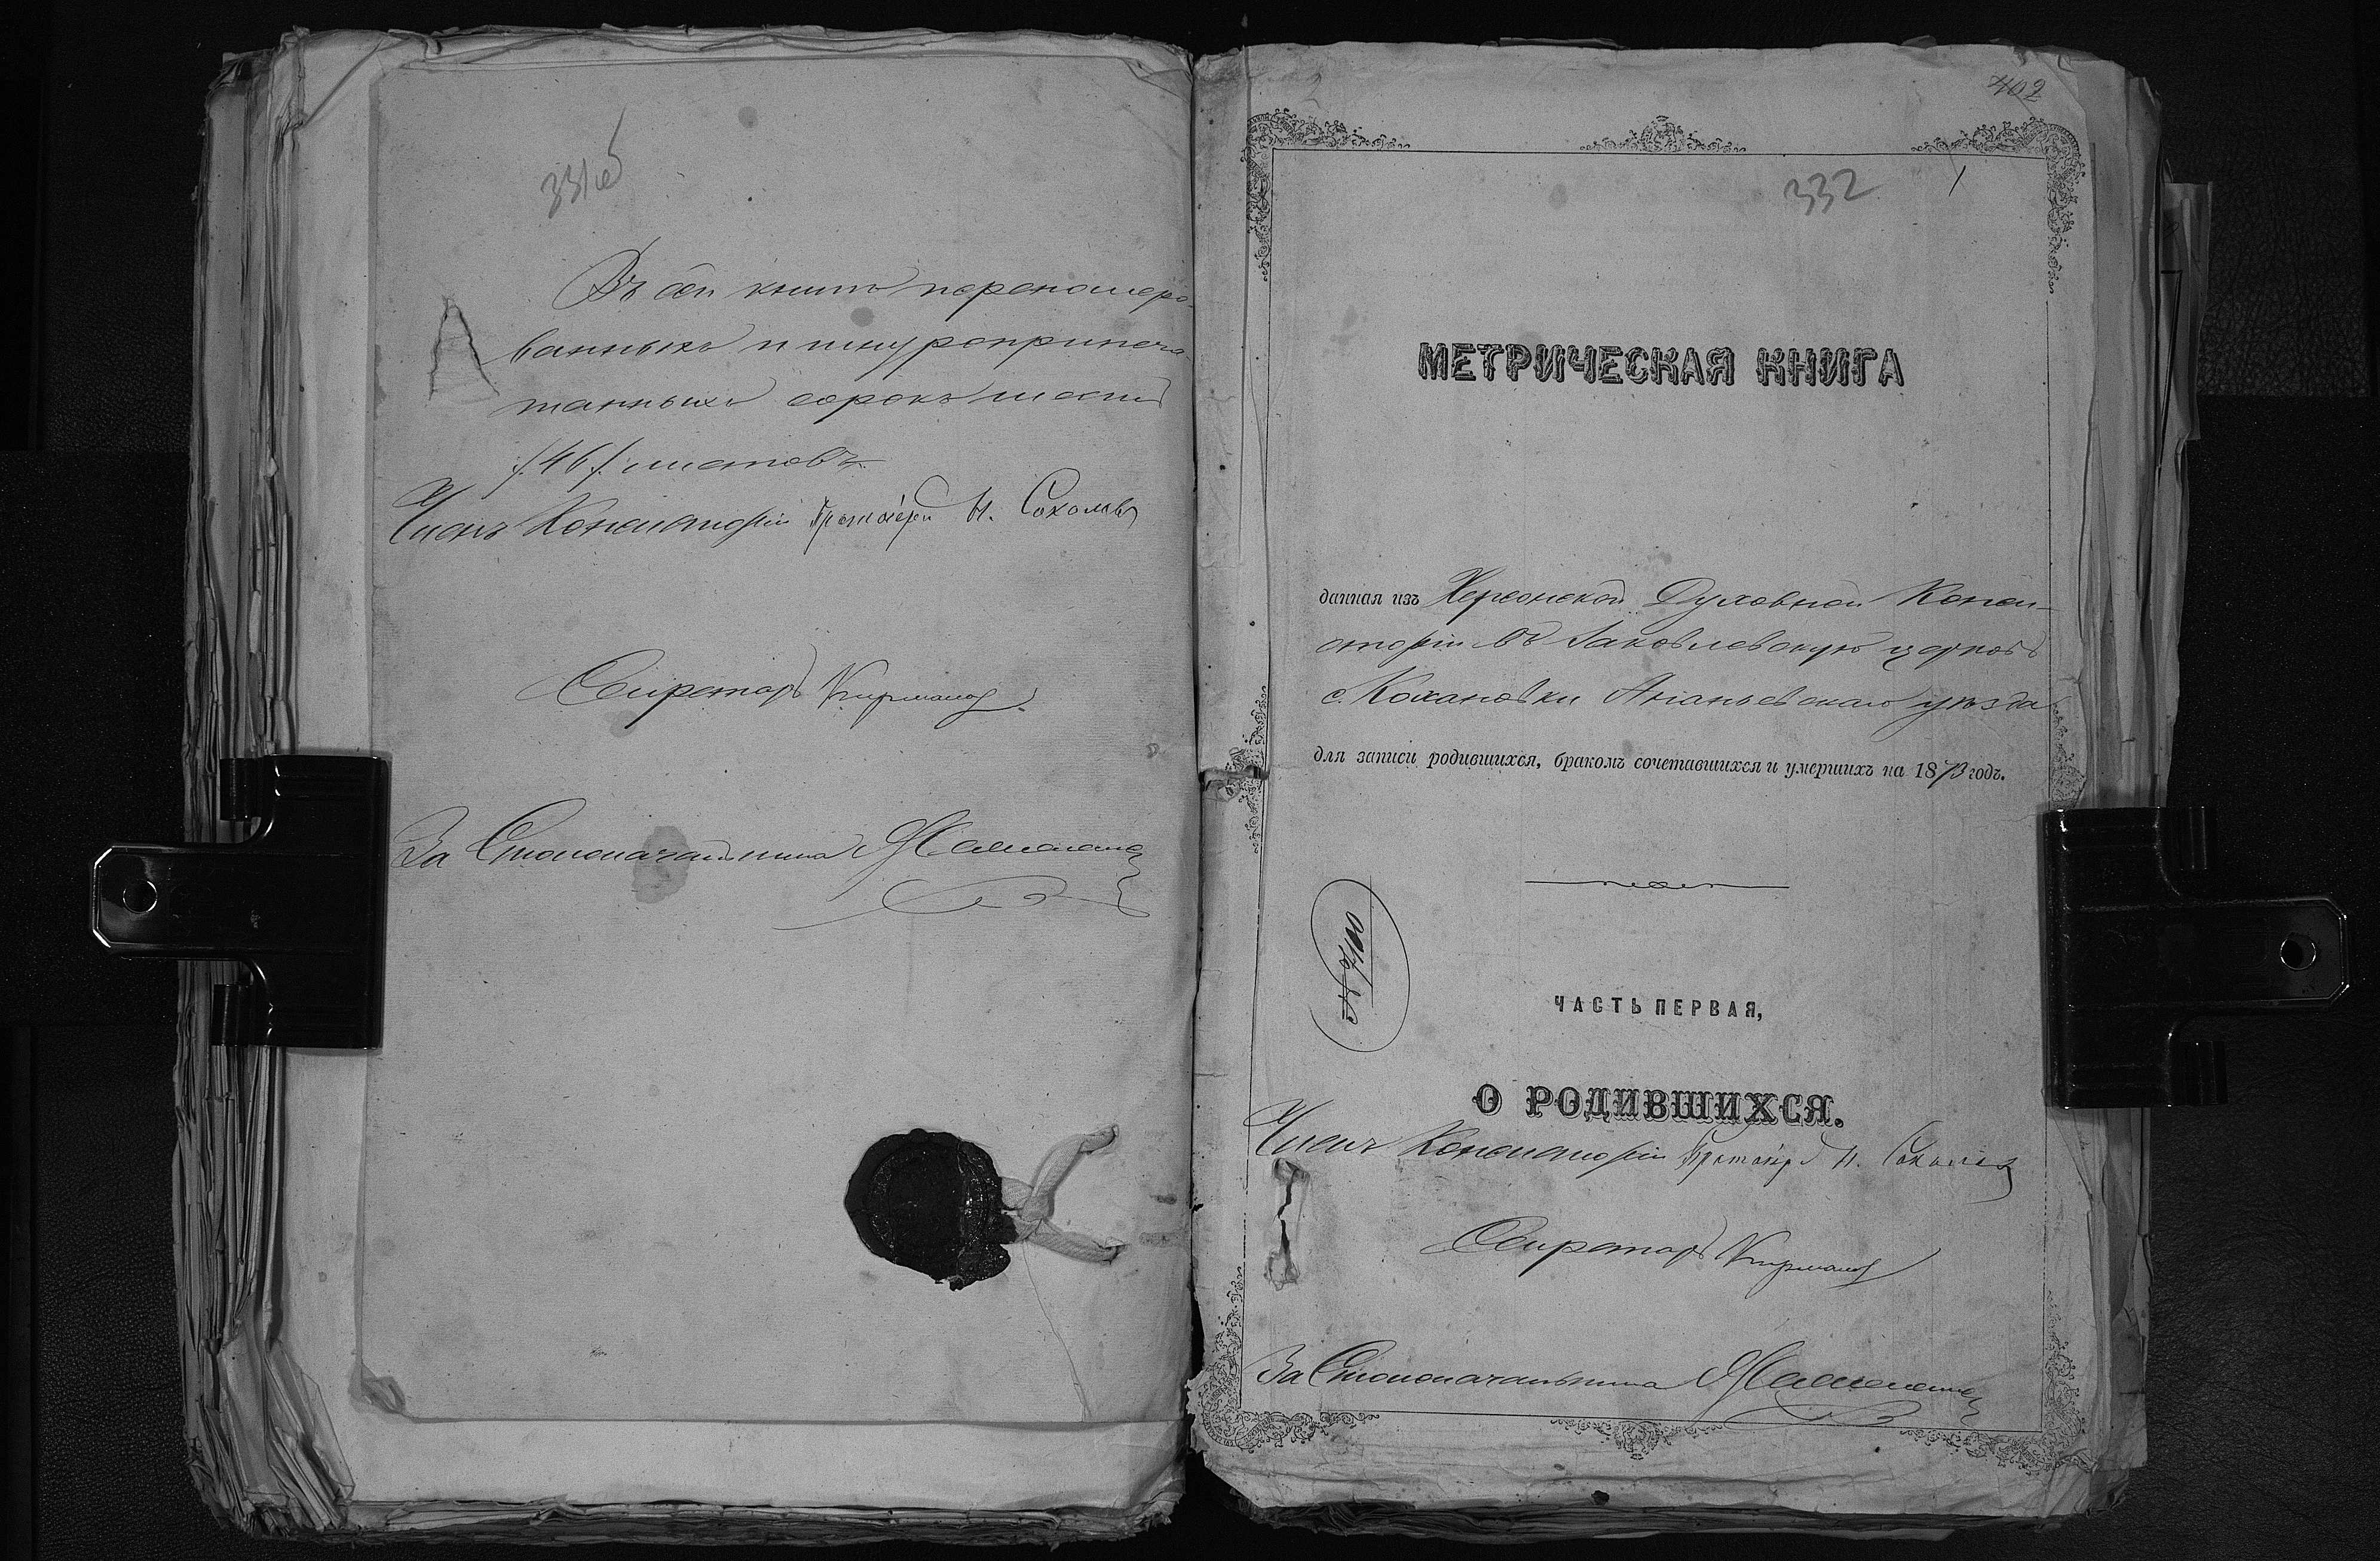 331об
Въ сей книгѣ перономеро-
ванныхъ и шнуроприпеча
танныхъ сорокъ шесть
/.46/. листовъ.
Членъ Консисторіи Протоіерей Н. Соколовъ
Секретарь
За Столоначальника
402
332
1
МЕТРИЧЕСКАЯ КНИГА
данная изъ Херсонской Духовной Конси-
сторіи въ Іаковлевскую церковь
с. Кохановки Ананьевскаго уѣзда
для записи родившихся, бракомъ сочетавшихся и умершихъ на 1873 годъ.
№ 7100
ЧАСТЬ ПЕРВАЯ,
О РОДИВШИХСЯ.
Членъ Консисторіи Протоіерей Н. Соколовъ
Секретарь
За Столоначальника